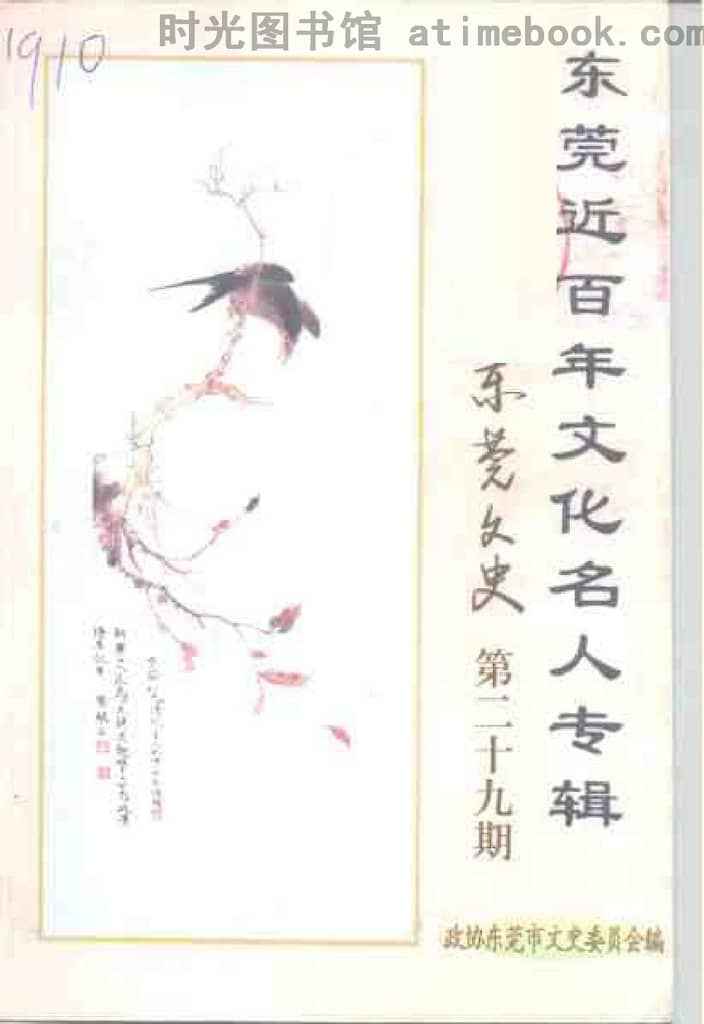 时光图书馆 atimebook.com
1910
东莞近百年文化名人专辑
东莞文史
第二十九期
政协东莞市文史委员会编